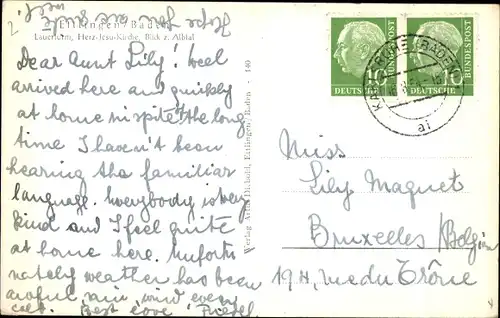 Ettlingen/Baden
Lauerturm, Herz-Jesu-Kirche, Blick z. Albtal
Dear Aunt Lily! Well
arrived here and quickly
at home in spite the long
time I haven't been
hearing the familiar
language. Everybody is very
kind and I feel quite
at home here. Unfortu
nately weather has been
awful, rain, wind every
Best love
Verlag Artur Diebold, Ettlingen/Baden - 140
10
DEUTSCHE
BUNDESPOST
10
DEUTSCHE
BUNDESPOST
KARLSRUHE (BADEN)
Miss
Lily Maquet
Bruxelles/Belgien
19 H, rue du Trône